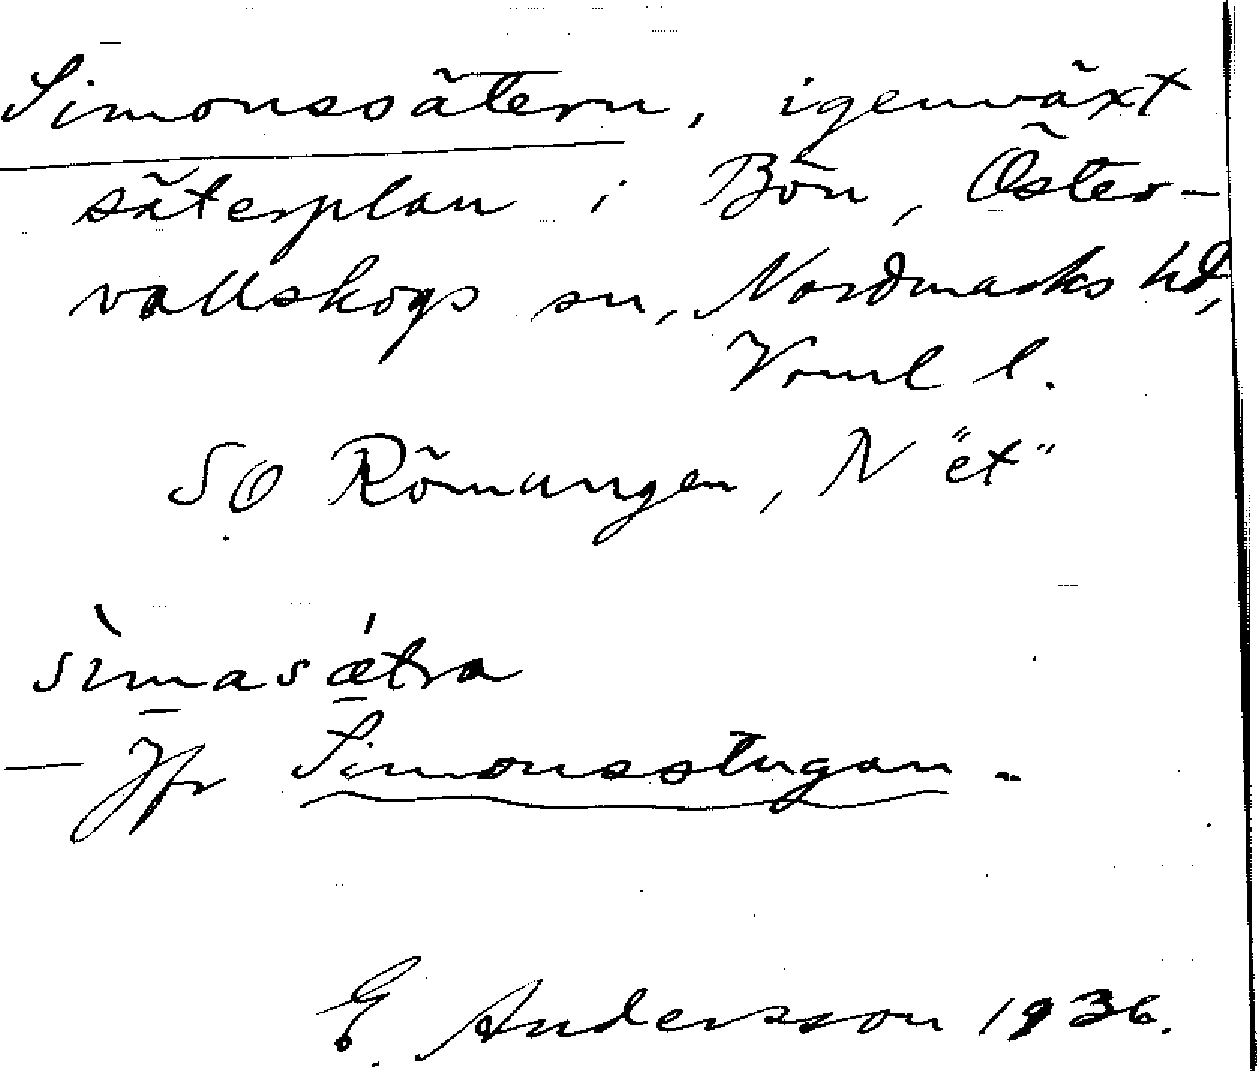 Simonssätern, igenväxt
säterplan i Bön, Öster-
vallskogs sn, Nordmarks hd,
Vrml l.
SO Römungen, N "ét"
sìmasǽtra
— Jfr Simonsstugan.
E. Andersson 1936.